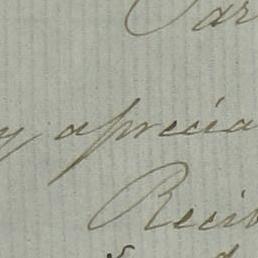 Par
y aprecia
Recib